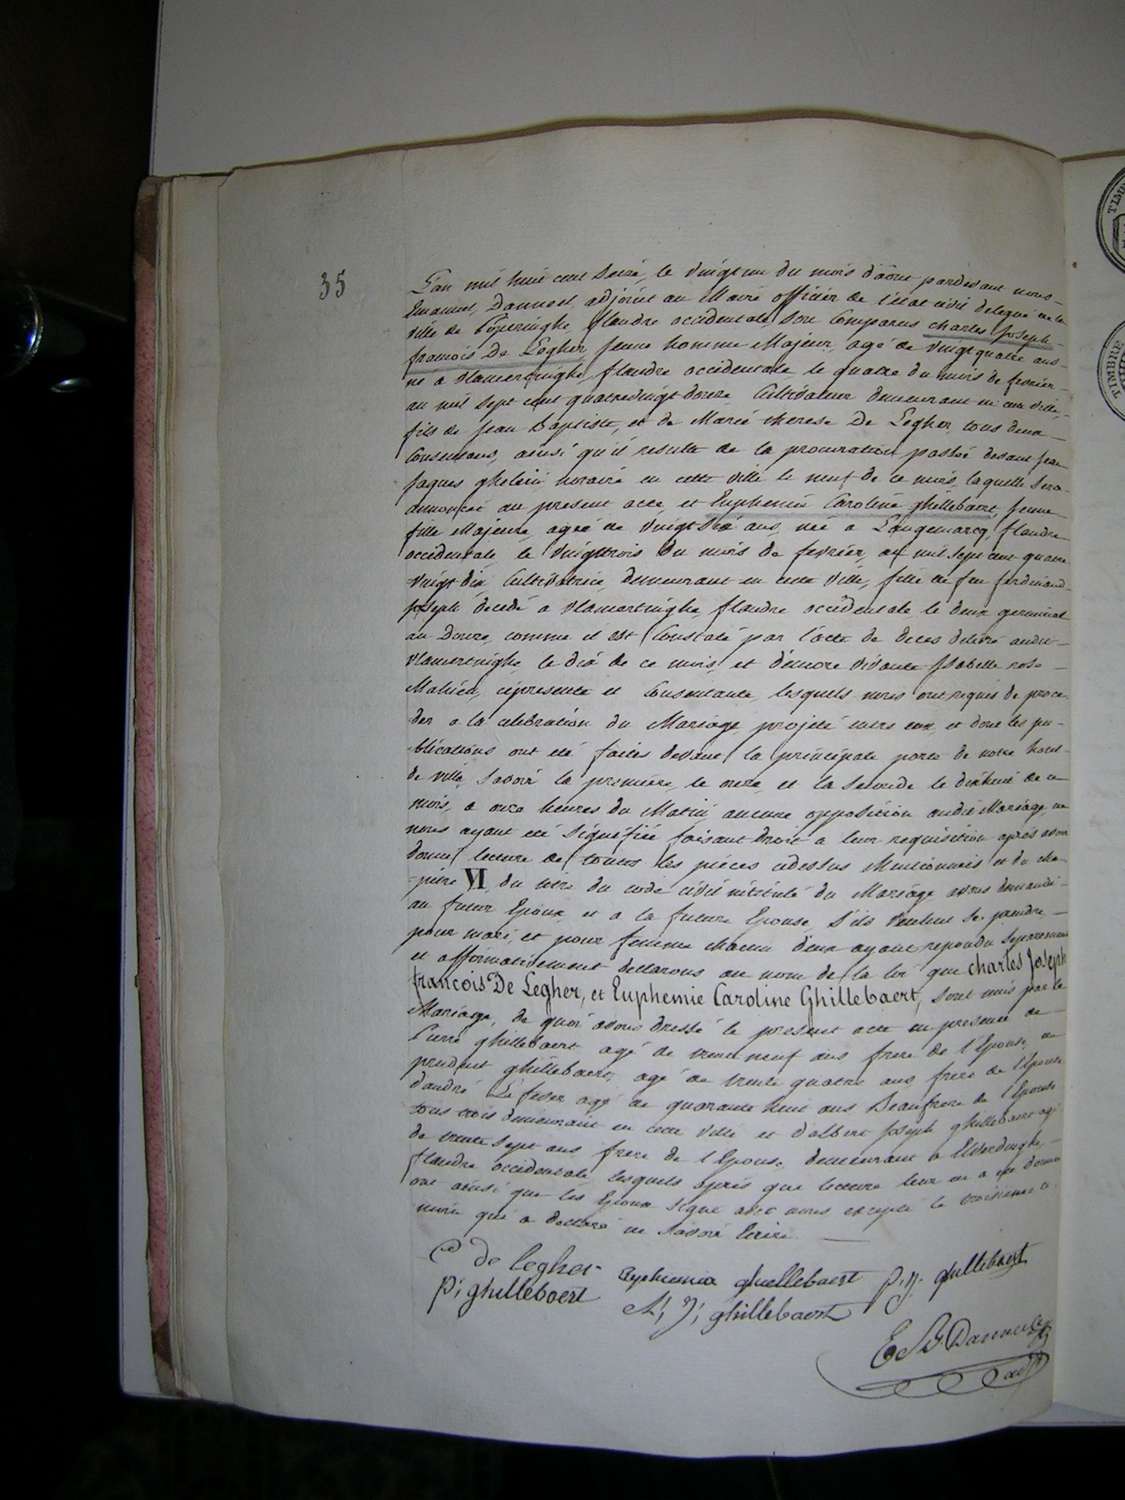 35
L'an mil huit cent Seize, le vingt un du mois d'août pardevant nous
Emanuel Dannoel adjoint au Maire officier de l'état civil delegué de la
ville de Poperinghe, flandre occidentale, sont Comparus charles Joseph
francois De Legher, jeune homme Majeur, agé de vingt quatre ans
né a Vlamertinghe, flandre occidentale le quatre du mois de fevrier
an mil sept cent quatrevingt douze Cultivateur demeurant en cette ville,
fils de Jean Baptiste, et de Marie therese De Legher, tous deux
Consentans, ainsi qu'il resulte de la procuration passée devant Jean
Jaques ghelein notaire en cette ville le neuf de ce mois laquelle sera
annexée au present acte, et Euphemie Caroline ghillebaert, jeune
fille Majeure, agée de vingt six ans, née a Langemarcq, flandre
occidentale, le vingt trois du mois de fevrier, an mil sept cent quatre
vingt dix Cultivatrice, demeurant en cette ville, fille de feu ferdinand
Joseph decedé a Vlamertinghe, flandre occidentale le deux germinal
an Douze, comme il est Constaté par l'acte de Deces delivré audit
Vlamertinghe, le dix de ce mois, et d'encore vivante Isabelle rose
Mahieu, cipresente et Consentante, lesquels nous ont requis de proce
der a la celebration du Mariage projeté entre eux, et dont les pu-
blications ont été faites devant la principale porte de notre hotel
de ville, Savoir la premiere, le onze, et la Seconde le dixhuit de ce
mois, a onze heures du Matin, aucune opposition audit Mariage, ne
nous ayant été Signifiée faisant droit a leur requisition apres avoir
donné lecture de toutes les pièces cidessus Mentionnées et du cha-
-pitre VI du titre du code civil intitulé du Mariage avons demandé
au futur Epoux et a la future Epouse S'ils veulent se prendre
pour mari, et pour femme chacun d'eux ayant repondu Separement
et affirmativement declarons au nom de la loi que charles Joseph
francois De Legher, et Euphemie Caroline Ghillebaert, sont unis par le
Mariage, de quoi avons dressé le present acte en presence de
Pierre ghillebaert agé de trente neuf ans frere de l'Epouse, de
prudent ghillebaert, agé de trente quatre ans frere de l'Epouse
d'andré agé de quarante huit ans Beaufrere de l'Epouse
tous trois demeurant en cette ville et d'albert Joseph ghillebaert agé
de trente sept ans frere de l'Epouse demeurant a Elverdinghe,
flandre occidentale lesquels apres que lecture leur en a été donné
ont ainsi que les Epoux signé avec nous excepté le troisieme te
moin qui a declaré ne Savoir Ecrire.
de legher
Euphemia ghuellebaert
p: j: ghillebaert
P: ghillebaert
A: J: ghillebaert
E Dannoel
TIMBRE